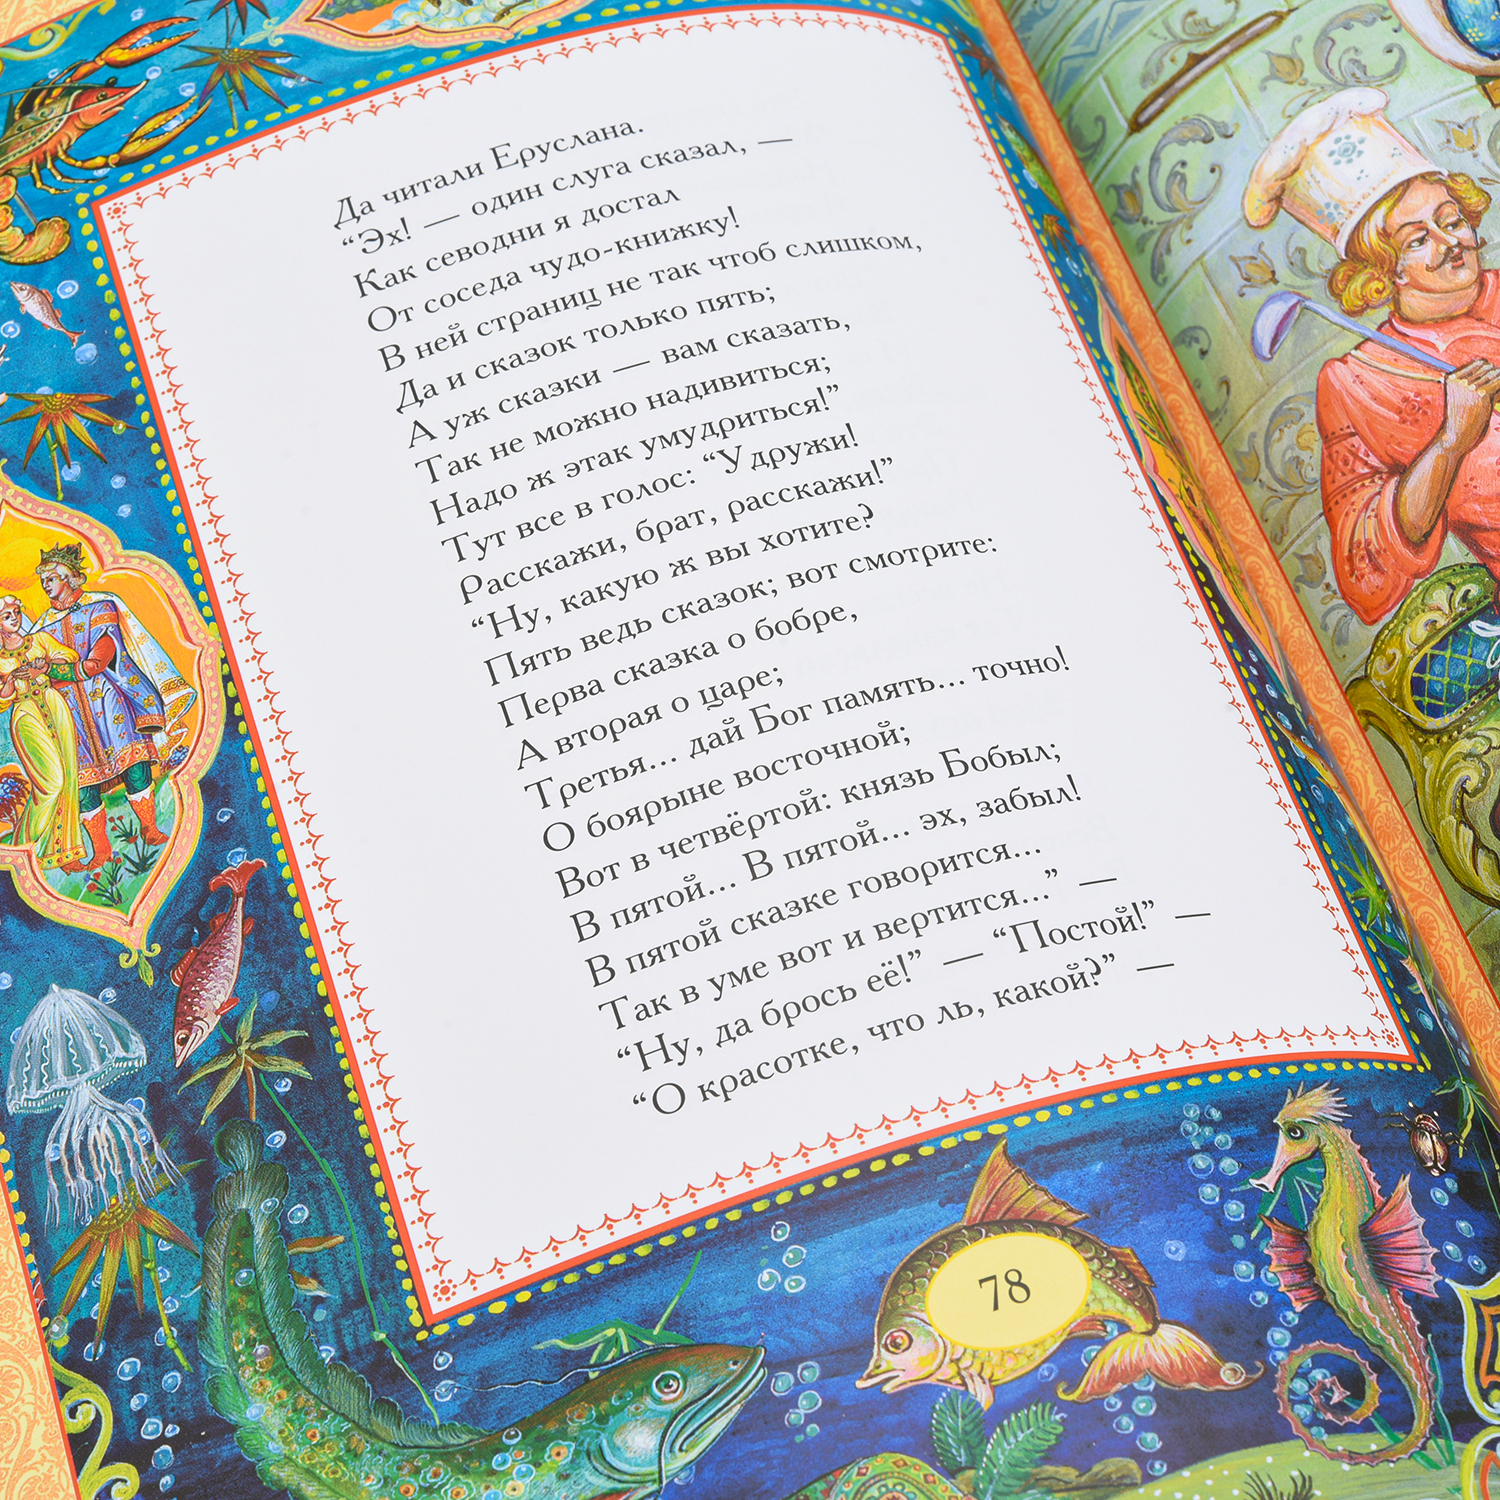 Да читали Еруслана.
“Эх! — один слуга сказал, —
Как севодни я достал
От соседа чудо-книжку!
В ней страниц не так чтоб слишком,
Да и сказок только пять;
А уж сказки — вам сказать,
Так не можно надивиться;
Надо ж этак умудриться!”
Тут все в голос: “Удружи!
Расскажи, брат, расскажи!”
“Ну, какую ж вы хотите?
Пять ведь сказок; вот смотрите:
Перва сказка о бобре,
А вторая о царе;
Третья... дай Бог память... точно!
О боярыне восточной;
Вот в четвёртой: князь Бобыл;
В пятой... В пятой... эх, забыл!
В пятой сказке говорится...
Так в уме вот и вертится...” —
“Ну, да брось её!” — “Постой!” —
“О красотке, что ль, какой?” —
78